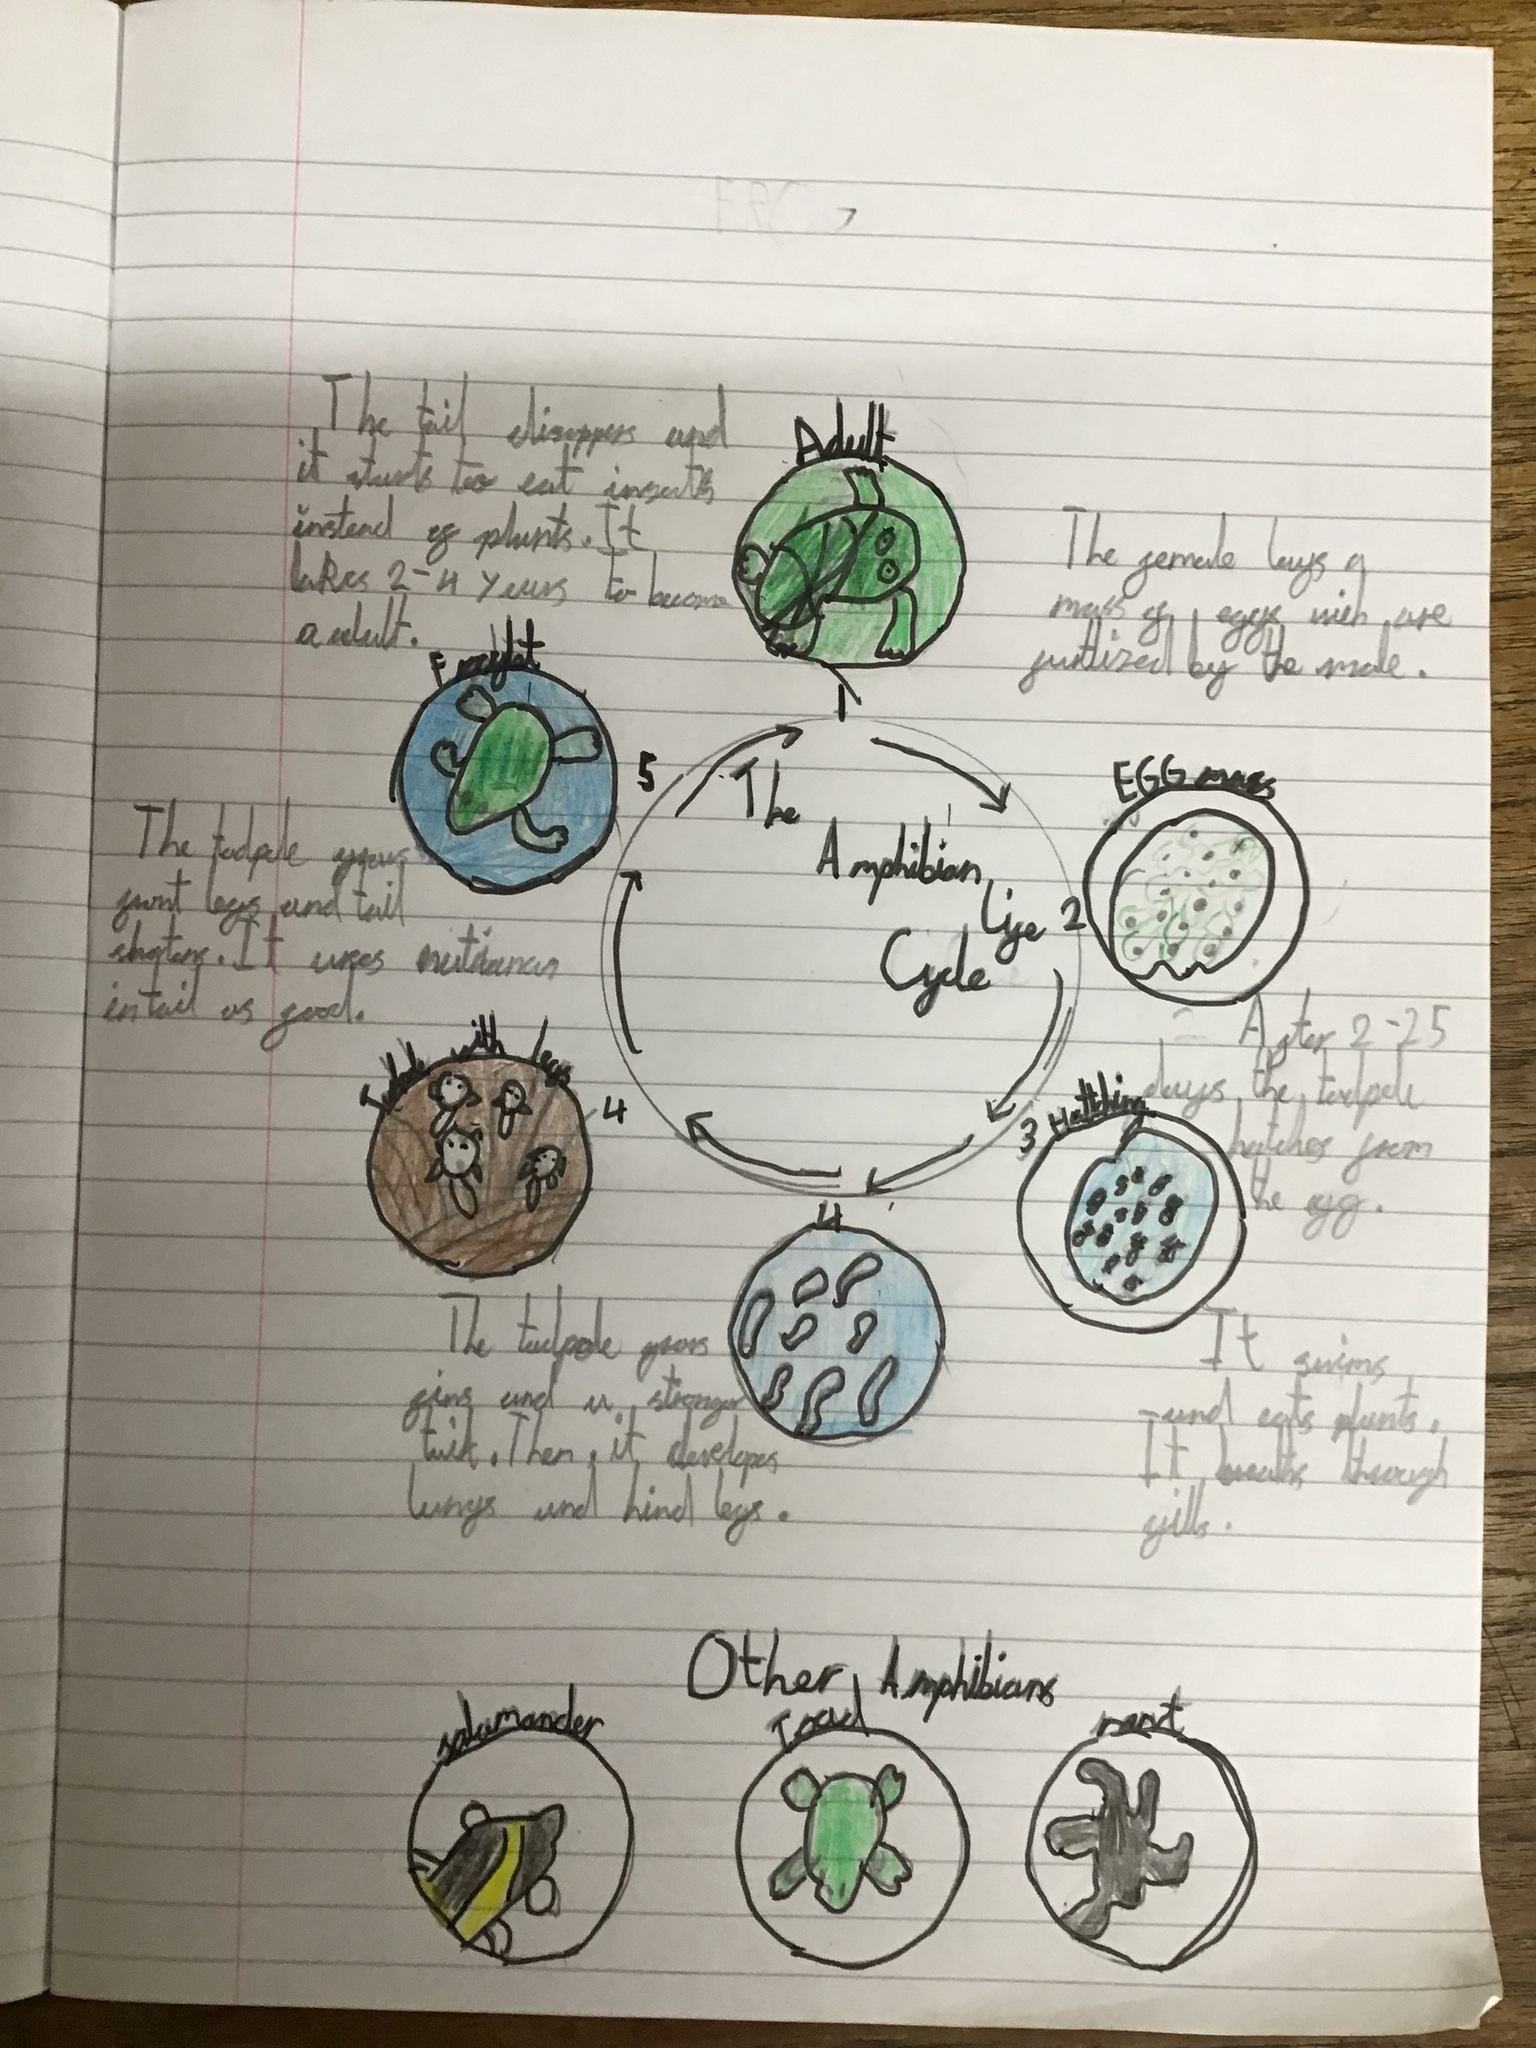 The tail disappers and
it starts to eat insects
instead of plants. It
takes 2-4 years to become
a adult.
Adult
The female lays a
mass of eggs wich are
furtlized by the male.
1
Froglet
5
The
Amphibian
Life
Cycle
EGG mass
2
The tadpole grows
front legs and tail
shortens. It uses
in tail as food.
After 2-25
days the tadpole
hatches from
the egg.
Tadpole with legs
4
3
Hatthing
4
The tadpole grows
fins and a stronger
tail. Then, it developes
lungs and hind legs.
It swims
and eats plants.
It breaths through
gills.
Other Amphibians
salamander
Toad
newt